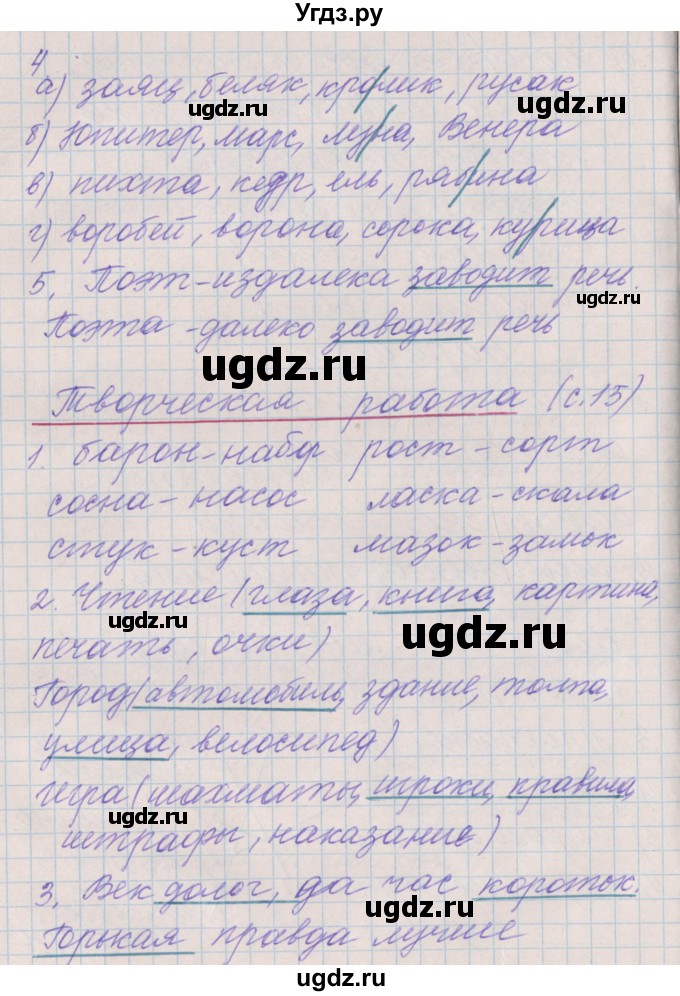 Угдз.ру
4
а) заяц, беляк, кролик, русак
ugdz.ru
б) Юпитер, марс, луна, Венера
ugdz.ru
в) пихта, кедр, ель, рябина
г) воробей, ворона, сорока, курица
ugdz.ru
5. Поэт-издалека заводит речь.
ugdz.ru
Поэта -далеко заводит речь
ugdz.ru
Творческая работа (с.15)
1. барон-набор рост-сорт
ugdz.ru
сосна-насос ласка-скала
стук-куст мазок-замок
ugdz.ru
2. Чтение (глаза, книга, картина,
ugdz.ru
печать, очки)
Город (автомобиль, здание, толпа,
ugdz.ru
улица, велосипед)
игра (шахматы, игроки, правила,
ugdz.ru
штрафы, наказание)
3. Век долог, да час короток.
ugdz.ru
Горькая правда лучше
ugdz.ru
ugdz.ru